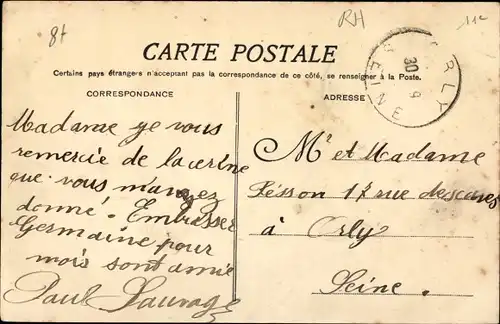 8t
RH
11e
CARTE POSTALE
Certains pays étrangers n'acceptant pas la correspondance de ce côté, se renseigner à la Poste.
CORRESPONDANCE
ADRESSE
ORLY
30
9
SEINE
Madame ge vous
remercie de la cerine
que vous m'avez
donné. Embrasser
Germaine pour
mois sont amie
Paul Sauvage
Mr et Madame
Pésson 17 rue
à Orly
Seine.